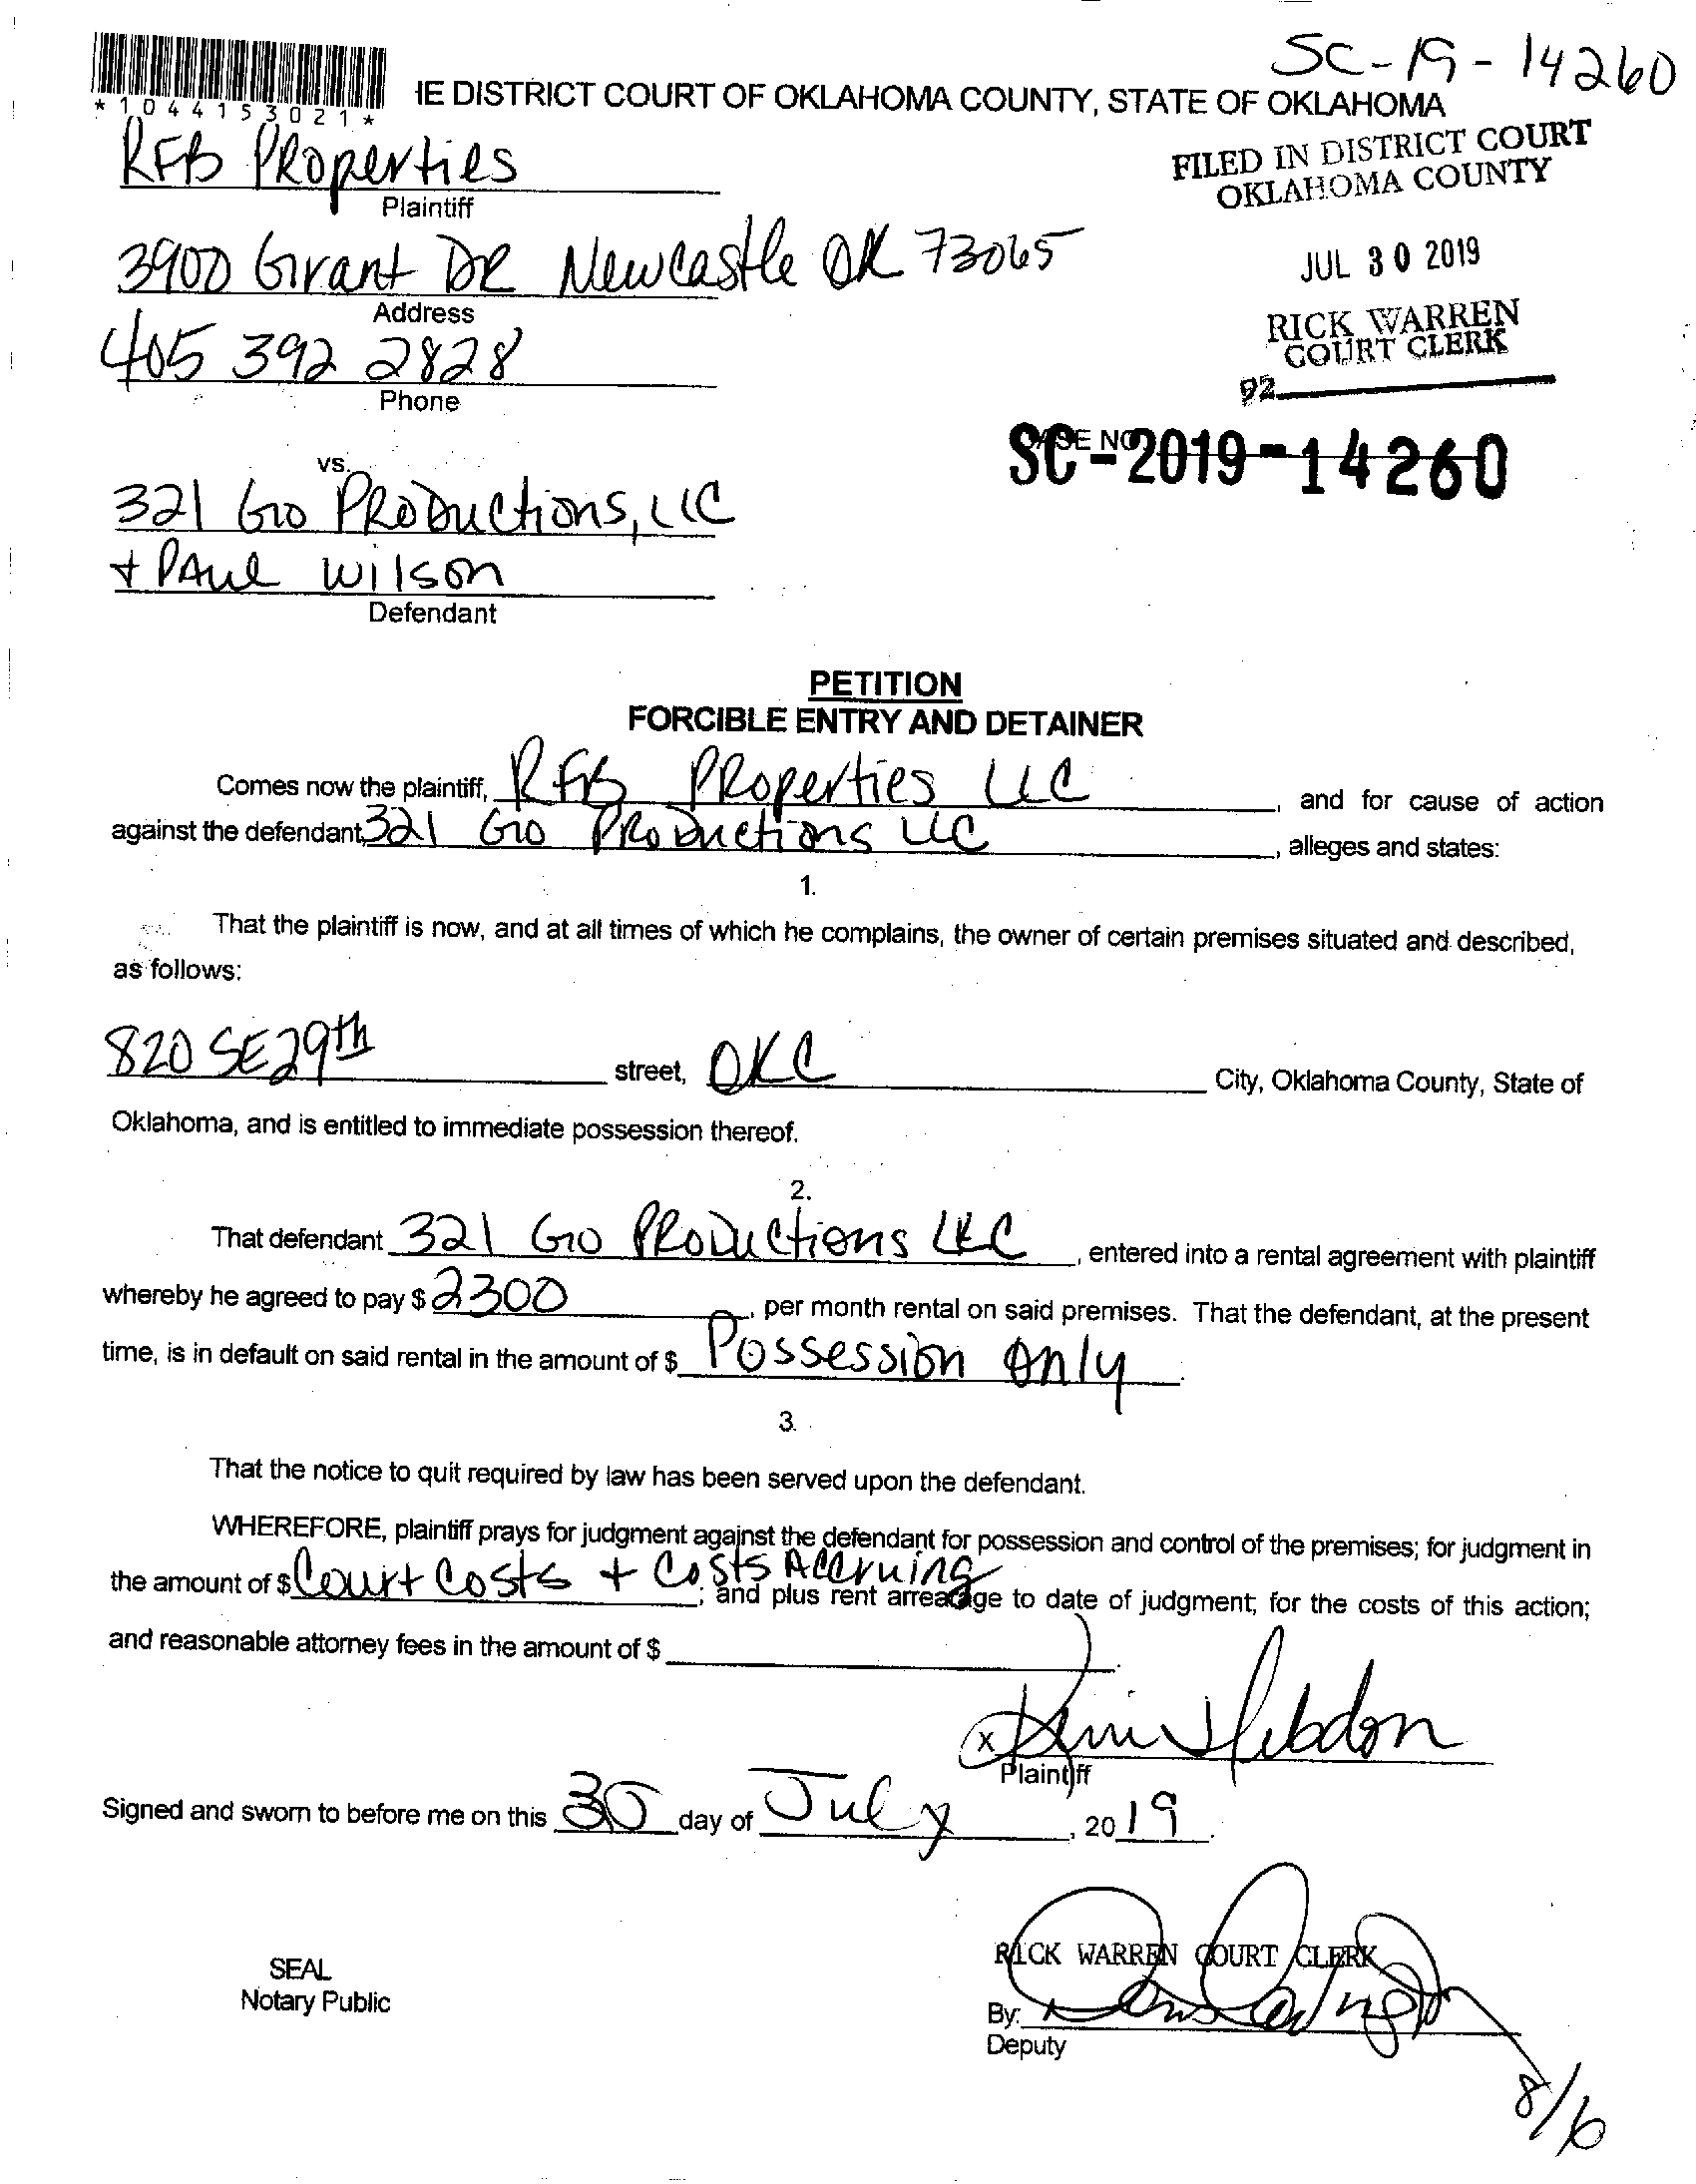 SC-19-14260
*1044153021*
IE DISTRICT COURT OF OKLAHOMA COUNTY, STATE OF OKLAHOMA
RFB Properties
Plaintiff
FILED IN DISTRICT COURT
OKLAHOMA COUNTY
3900 Grant DR Newcastle OK 73065
Address
JUL 30 2019
405 392 2828
Phone
RICK WARREN
COURT CLERK
92
vs.
CASE NO
SC-2019-14260
321 Go PRODuctions, LLC
+ PAul Wilson
Defendant
PETITION
FORCIBLE ENTRY AND DETAINER
Comes now the plaintiff, RFB PRoperties LLC, and for cause of action
against the defendant, 321 Go PRODuctions LLC, alleges and states:
1.
That the plaintiff is now, and at all times of which he complains, the owner of certain premises situated and described,
as follows:
820 SE 29th street, OKC City, Oklahoma County, State of
Oklahoma, and is entitled to immediate possession thereof.
2.
That defendant 321 Go PRODuctions LLC, entered into a rental agreement with plaintiff
whereby he agreed to pay $ 2300, per month rental on said premises. That the defendant, at the present
time, is in default on said rental in the amount of $ Possession Only.
3.
That the notice to quit required by law has been served upon the defendant.
WHEREFORE, plaintiff prays for judgment against the defendant for possession and control of the premises; for judgment in
the amount of $ Court Costs + Costs Accruing; and plus rent arrearage to date of judgment; for the costs of this action;
and reasonable attorney fees in the amount of $
x Kim Hebdon
Plaintiff
Signed and sworn to before me on this 30 day of July, 2019.
SEAL
Notary Public
RICK WARREN COURT CLERK
By:
Deputy
8/6